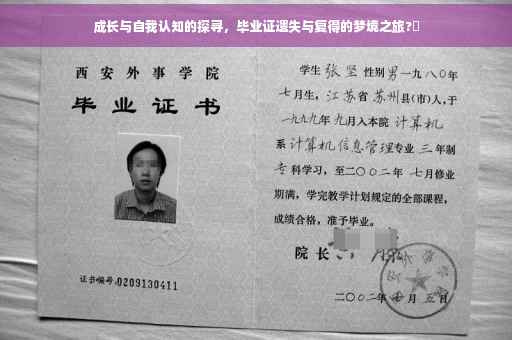 成长与自我认知的探寻，毕业证遗失与复得的梦境之旅?
西安外事学院
毕业证书
证书编号:0209130411
学生张坚性别男一九八〇年
七月生，江苏省苏州县(市)人，于
一九九九年九月入本院计算机
系计算机信息管理专业三年制
专科学习，至二〇〇二年七月修业
期满，学完教学计划规定的全部课程，
成绩合格，准予毕业。
院长
二〇〇二年七月五日